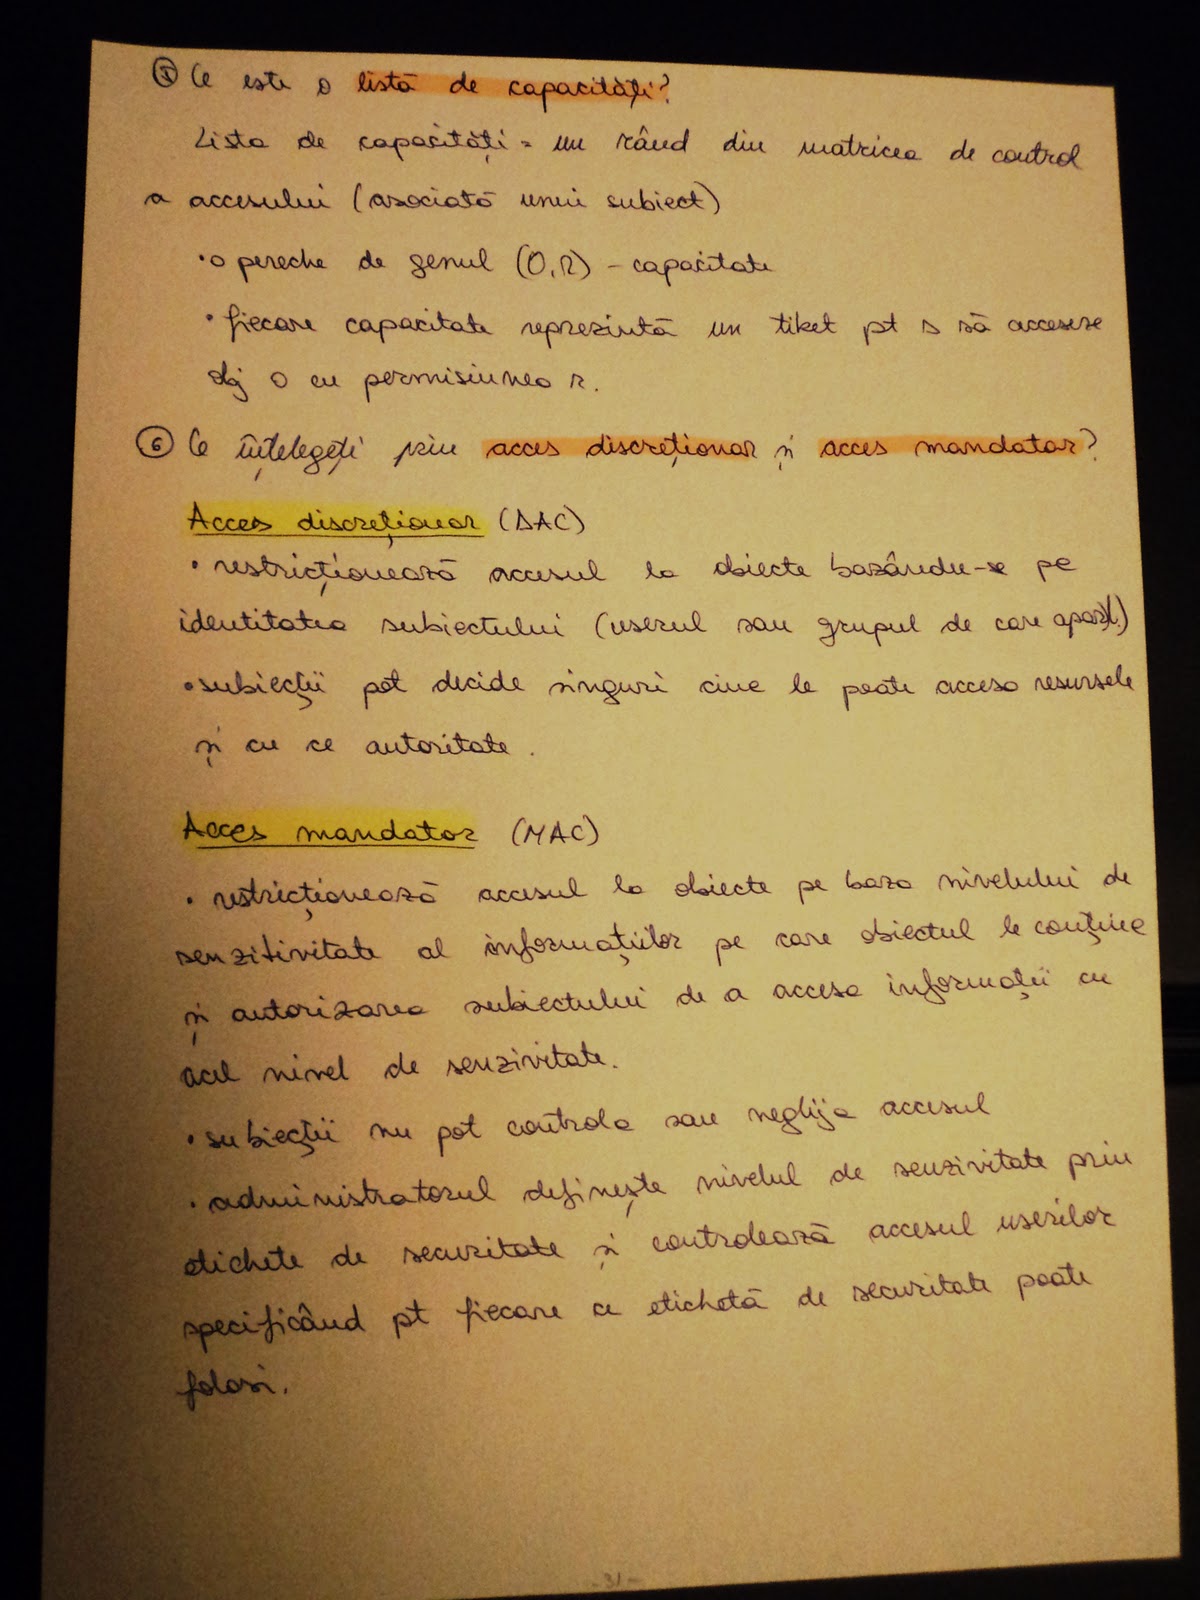 ⑤ Ce este o listă de capacități?
Lista de capacități = un rând din matricea de control
a accesului (asociată unui subiect)
• o pereche de genul (O,R) – capacitate
• fiecare capacitate reprezintă un tiket pt s să acceseze
obj o cu permisiunea r.
⑥ Ce înțelegeți prin acces discreționar și acces mandatar?
Acces discreționar (DAC)
• restricționează accesul la obiecte bazându-se pe
identitatea subiectului (userul sau grupul de care aparț.)
• subiecții pot decide singuri cine le poate accesa resursele
și cu ce autoritate.
Acces mandator (MAC)
• restricționează accesul la obiecte pe baza nivelului de
senzitivitate al informațiilor pe care obiectul le conține
și autorizarea subiectului de a accesa informații cu
acel nivel de senzivitate.
• subiecții nu pot controla sau neglija accesul
• administratorul definește nivelul de senzivitate prin
etichete de securitate și controlează accesul userilor
specificând pt fiecare ce etichetă de securitate poate
folosi.
- 31 -